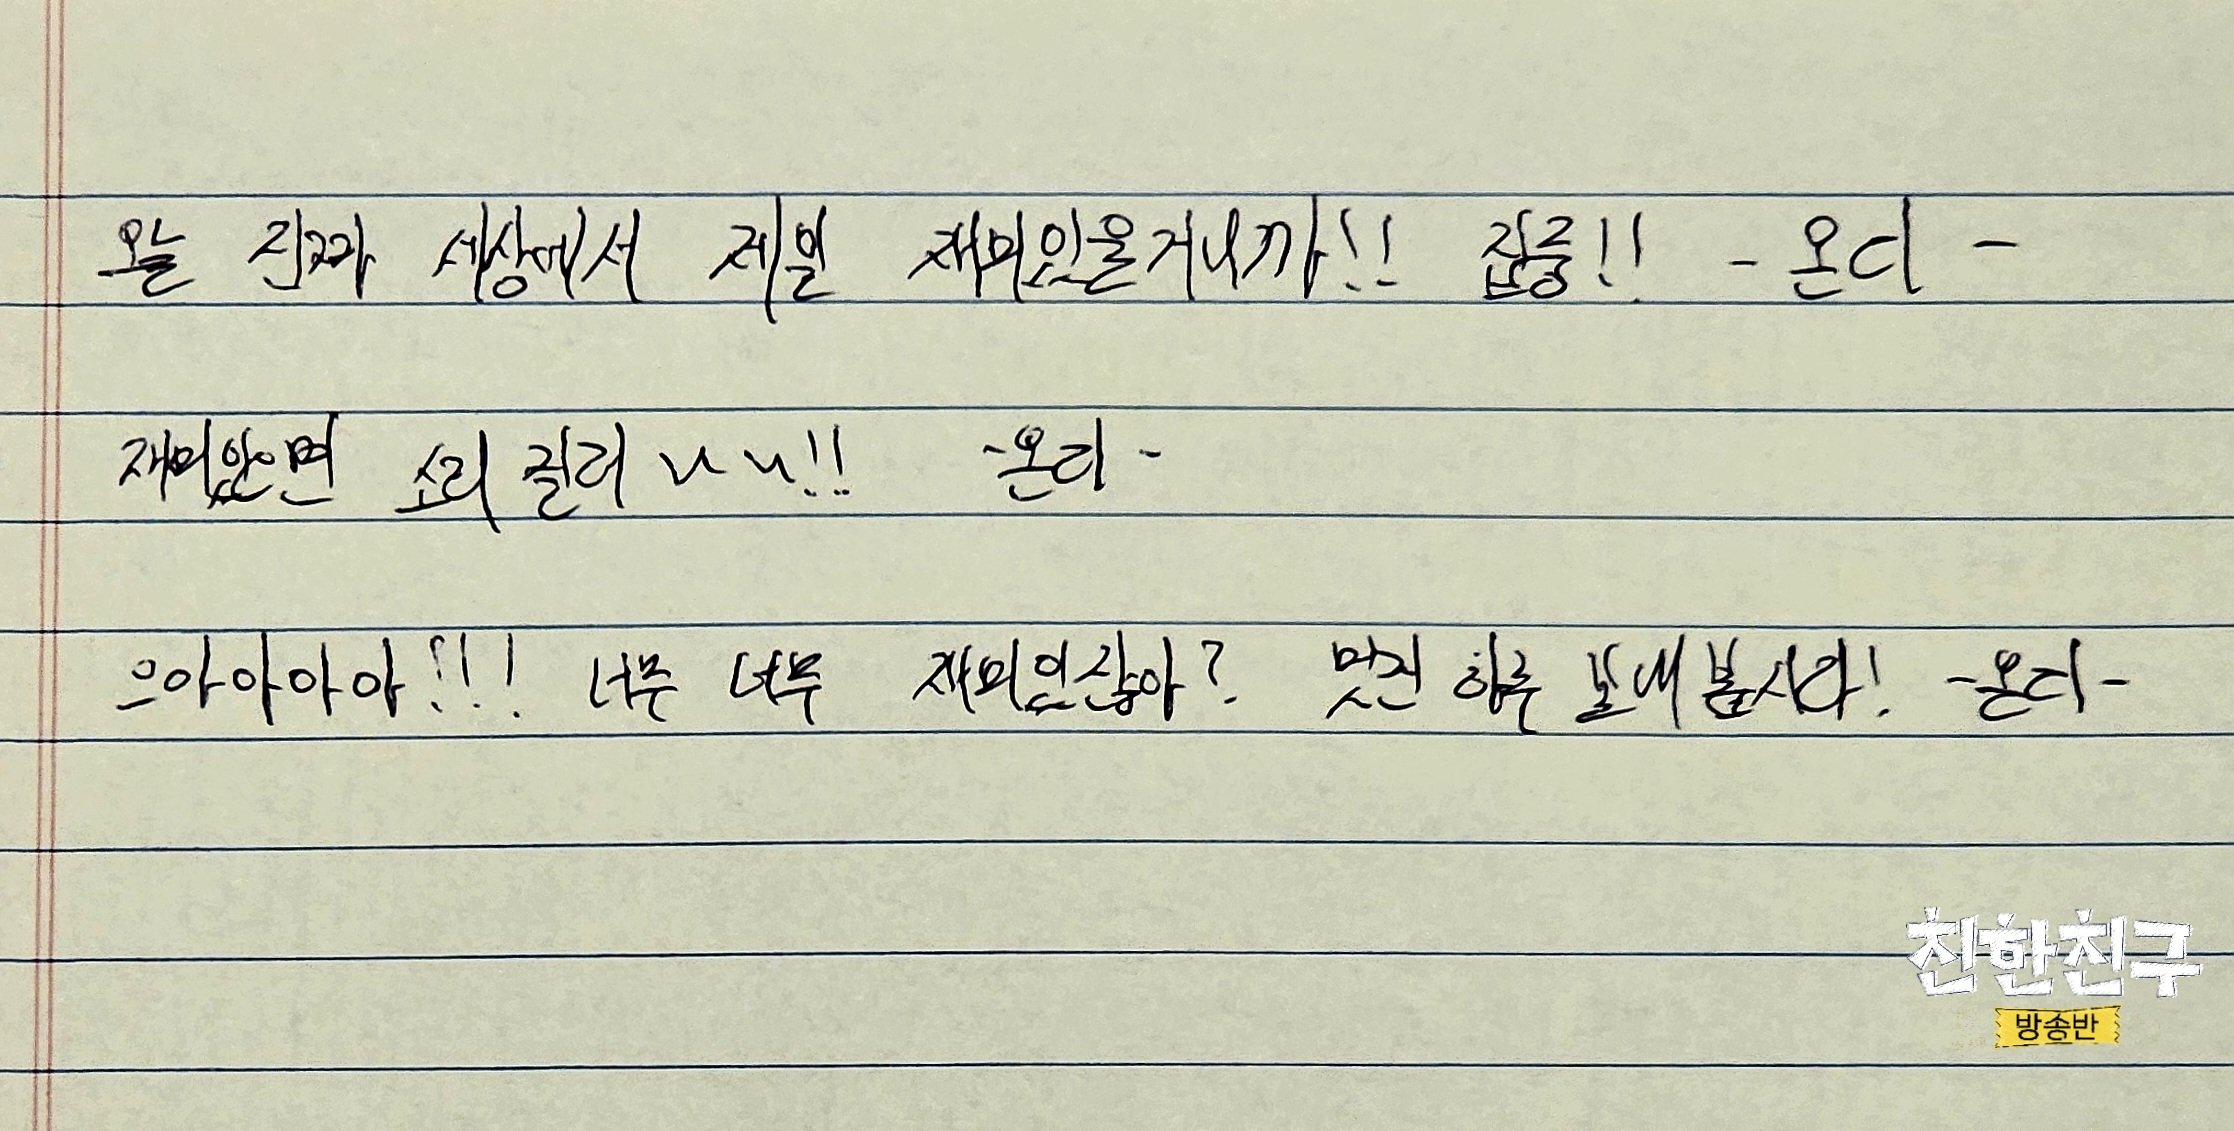 오늘 진짜 세상에서 제일 재미있을거니까!! 집중!! - 온디 -
재미있으면 소리 질러 !! - 온디 -
으아아아아!!! 너무 너무 재미있잖아? 멋진 하루 보내 봅시다! - 온디 -
친한친구
방송반